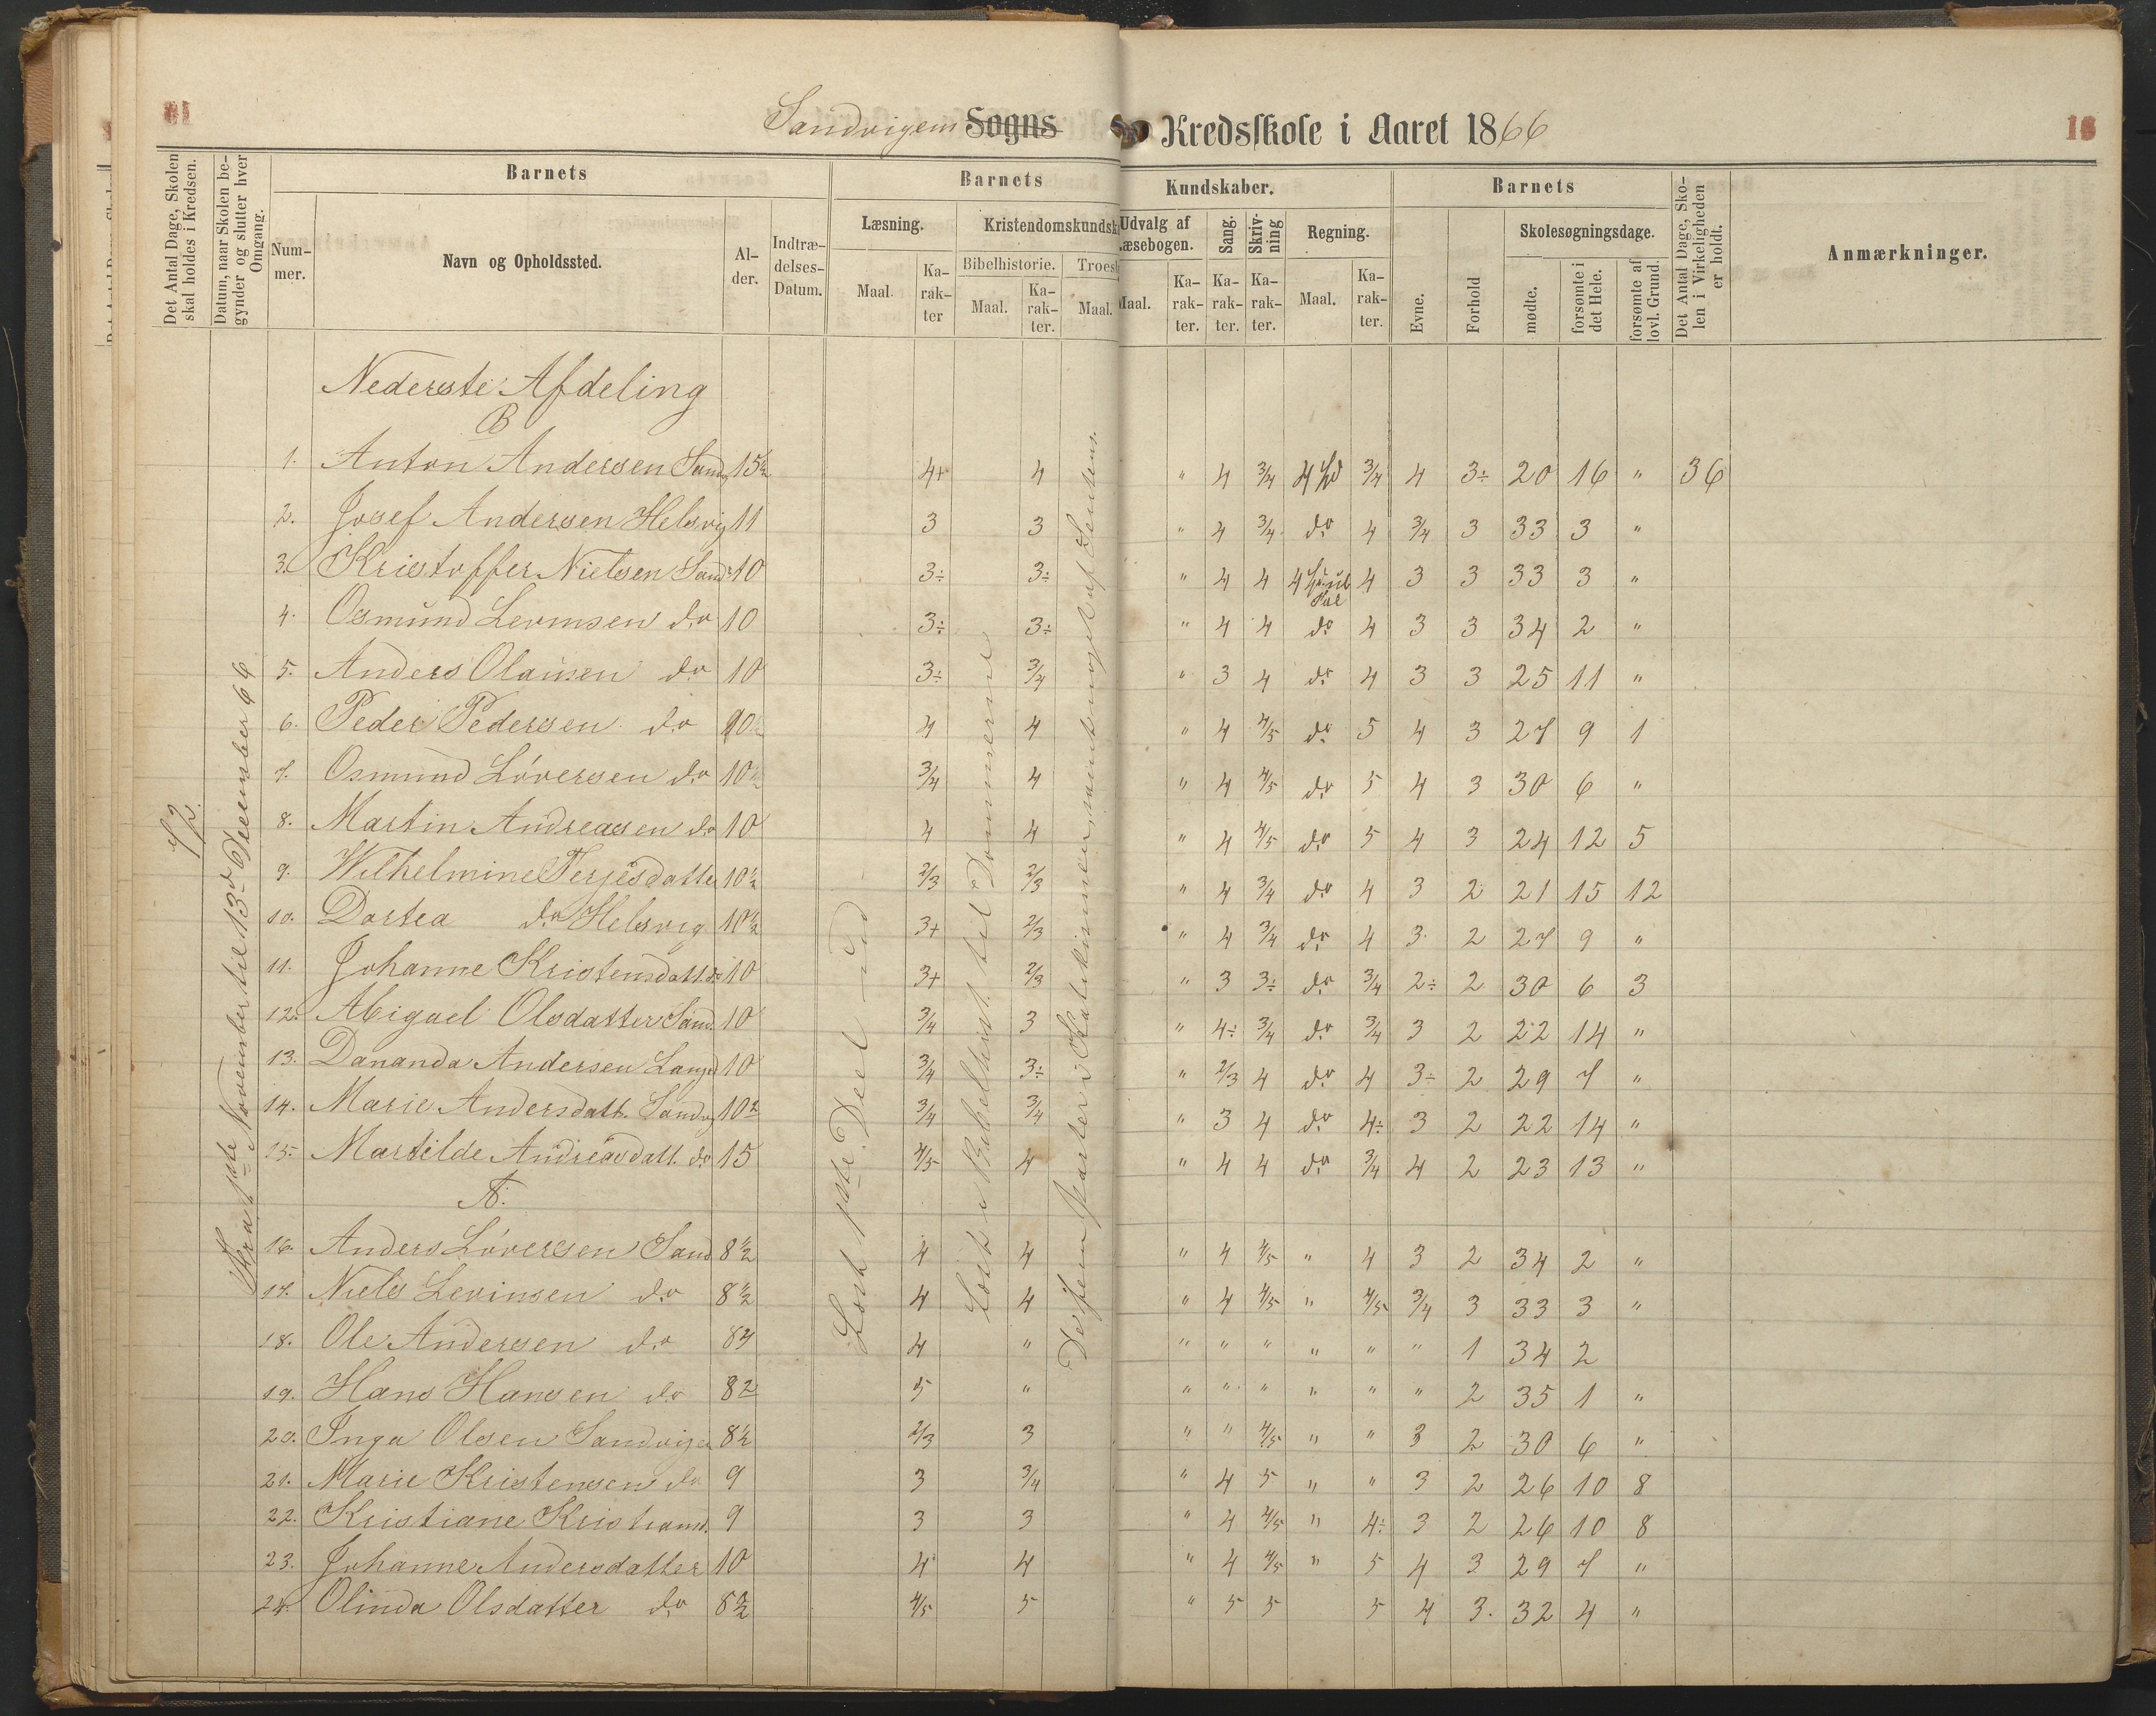 Sandvigens Sogns Kredsskole i Aaret 1866
16
Det Antal Dage, Skolen skal holdes i Kredsen.
Datum, naar Skolen begynder og slutter hver Omgang.
Barnets
Nummer.
Navn og Opholdssted.
Alder.
Indtrædelses-Datum.
Barnets
Læsning.
Maal.
Karakter
Kristendomskundsk
Bibelhistorie.
Maal.
Karakter.
Troes
Maal.
Kundskaber.
Udvalg af Læsebogen.
Maal.
Karakter.
Sang.
Karakter.
Skrivning
Karakter.
Regning.
Maal.
Karakter.
Barnets
Evne.
Forhold
Skolesøgningsdage.
mødte.
forsømte i det Hele.
forsømte af lovl. Grund.
Det Antal Dage, Skolen i Virkeligheden er holdt.
Anmærkninger.
72.
Fra 1ste November til 13de December 66
Læst 1ste Deel ud
Læst i Bibelhist. til Dommerne
Nederste Afdeling
B
1. Anton Andersen Sand 15½ 4+ 4 " 4 3/4 3/4 4 3÷ 20 16 " 36
2. Josef Andersen Helsvig 11 3 3 " 4 3/4 do 4 3/4 3 33 3 "
3. Kristoffer Nielsen Sand 10 3÷ 3÷ " 4 4 4 3 3 33 3 "
4. Osmund Levinsen do 10 3÷ 3÷ " 4 4 do 4 3 3 34 2 "
5. Anders Olausen do 10 3÷ 3/4 " 3 4 do 4 3 3 25 11 "
6. Peder Pedersen do 10½ 4 4 " 4 4/5 do 5 4 3 27 9 1
7. Osmund Löversen do 10½ 3/4 4 " 4 4/5 do 5 4 3 30 6 "
8. Martin Andreasen do 10 4 4 " 4 4/5 do 5 4 3 24 12 5
9. Wilhelmine Terjesdatter 10½ 2/3 2/3 " 4 3/4 do 4 3 2 21 15 12
10. Dortea do Helsvig 10½ 3+ 2/3 " 4 3/4 do 4 3 2 27 9 "
11. Johanne Kristensdatt. do 10 3+ 2/3 " 3 3÷ do 3/4 2÷ 2 30 6 3
12. Abigael Olsdatter Sand. 10 3/4 3 " 4÷ 3/4 do 3/4 3 2 22 14 "
13. Dananda Andersen 10 3/4 3÷ " 2/3 4 do 4 3÷ 2 29 7 "
14. Marie Andersdatt. Sandv 10½ 3/4 3/4 " 3 4 do 4÷ 3 2 22 14 "
15. Martilde Andreasdatt. do 15 4/5 4 " 4 4 do 3/4 4 2 23 13 "
A:
16. Anders Löversen Sand 8½ 4 4 " 4 4/5 " 4 3 2 34 2 "
17. Niels Levinsen do 8½ 4 4 " 4 4/5 " 4/5 3/4 3 33 3 "
18. Ole Andersen do 8½ 4 " " " " " " " 1 34 2
19. Hans Hansen do 8½ 5 " " " " " " " 2 35 1 "
20. Inga Olsen Sandvigen 8½ 2/3 3 " " 4/5 " " 3 2 30 6 "
21. Marie Kristensen do 9 3 3/4 " 4 5 " " 3 2 26 10 8
22. Kristiane Kristians. 9 3 3 " 4 4/5 " 4÷ 3 2 26 10 8
23. Johanne Andersdatter 10 4 4 " 4 4/5 " 5 4 3 29 7 "
24. Olinda Olsdatter do 8½ 4/5 5 " 5 5 5 4 3. 32 4 "